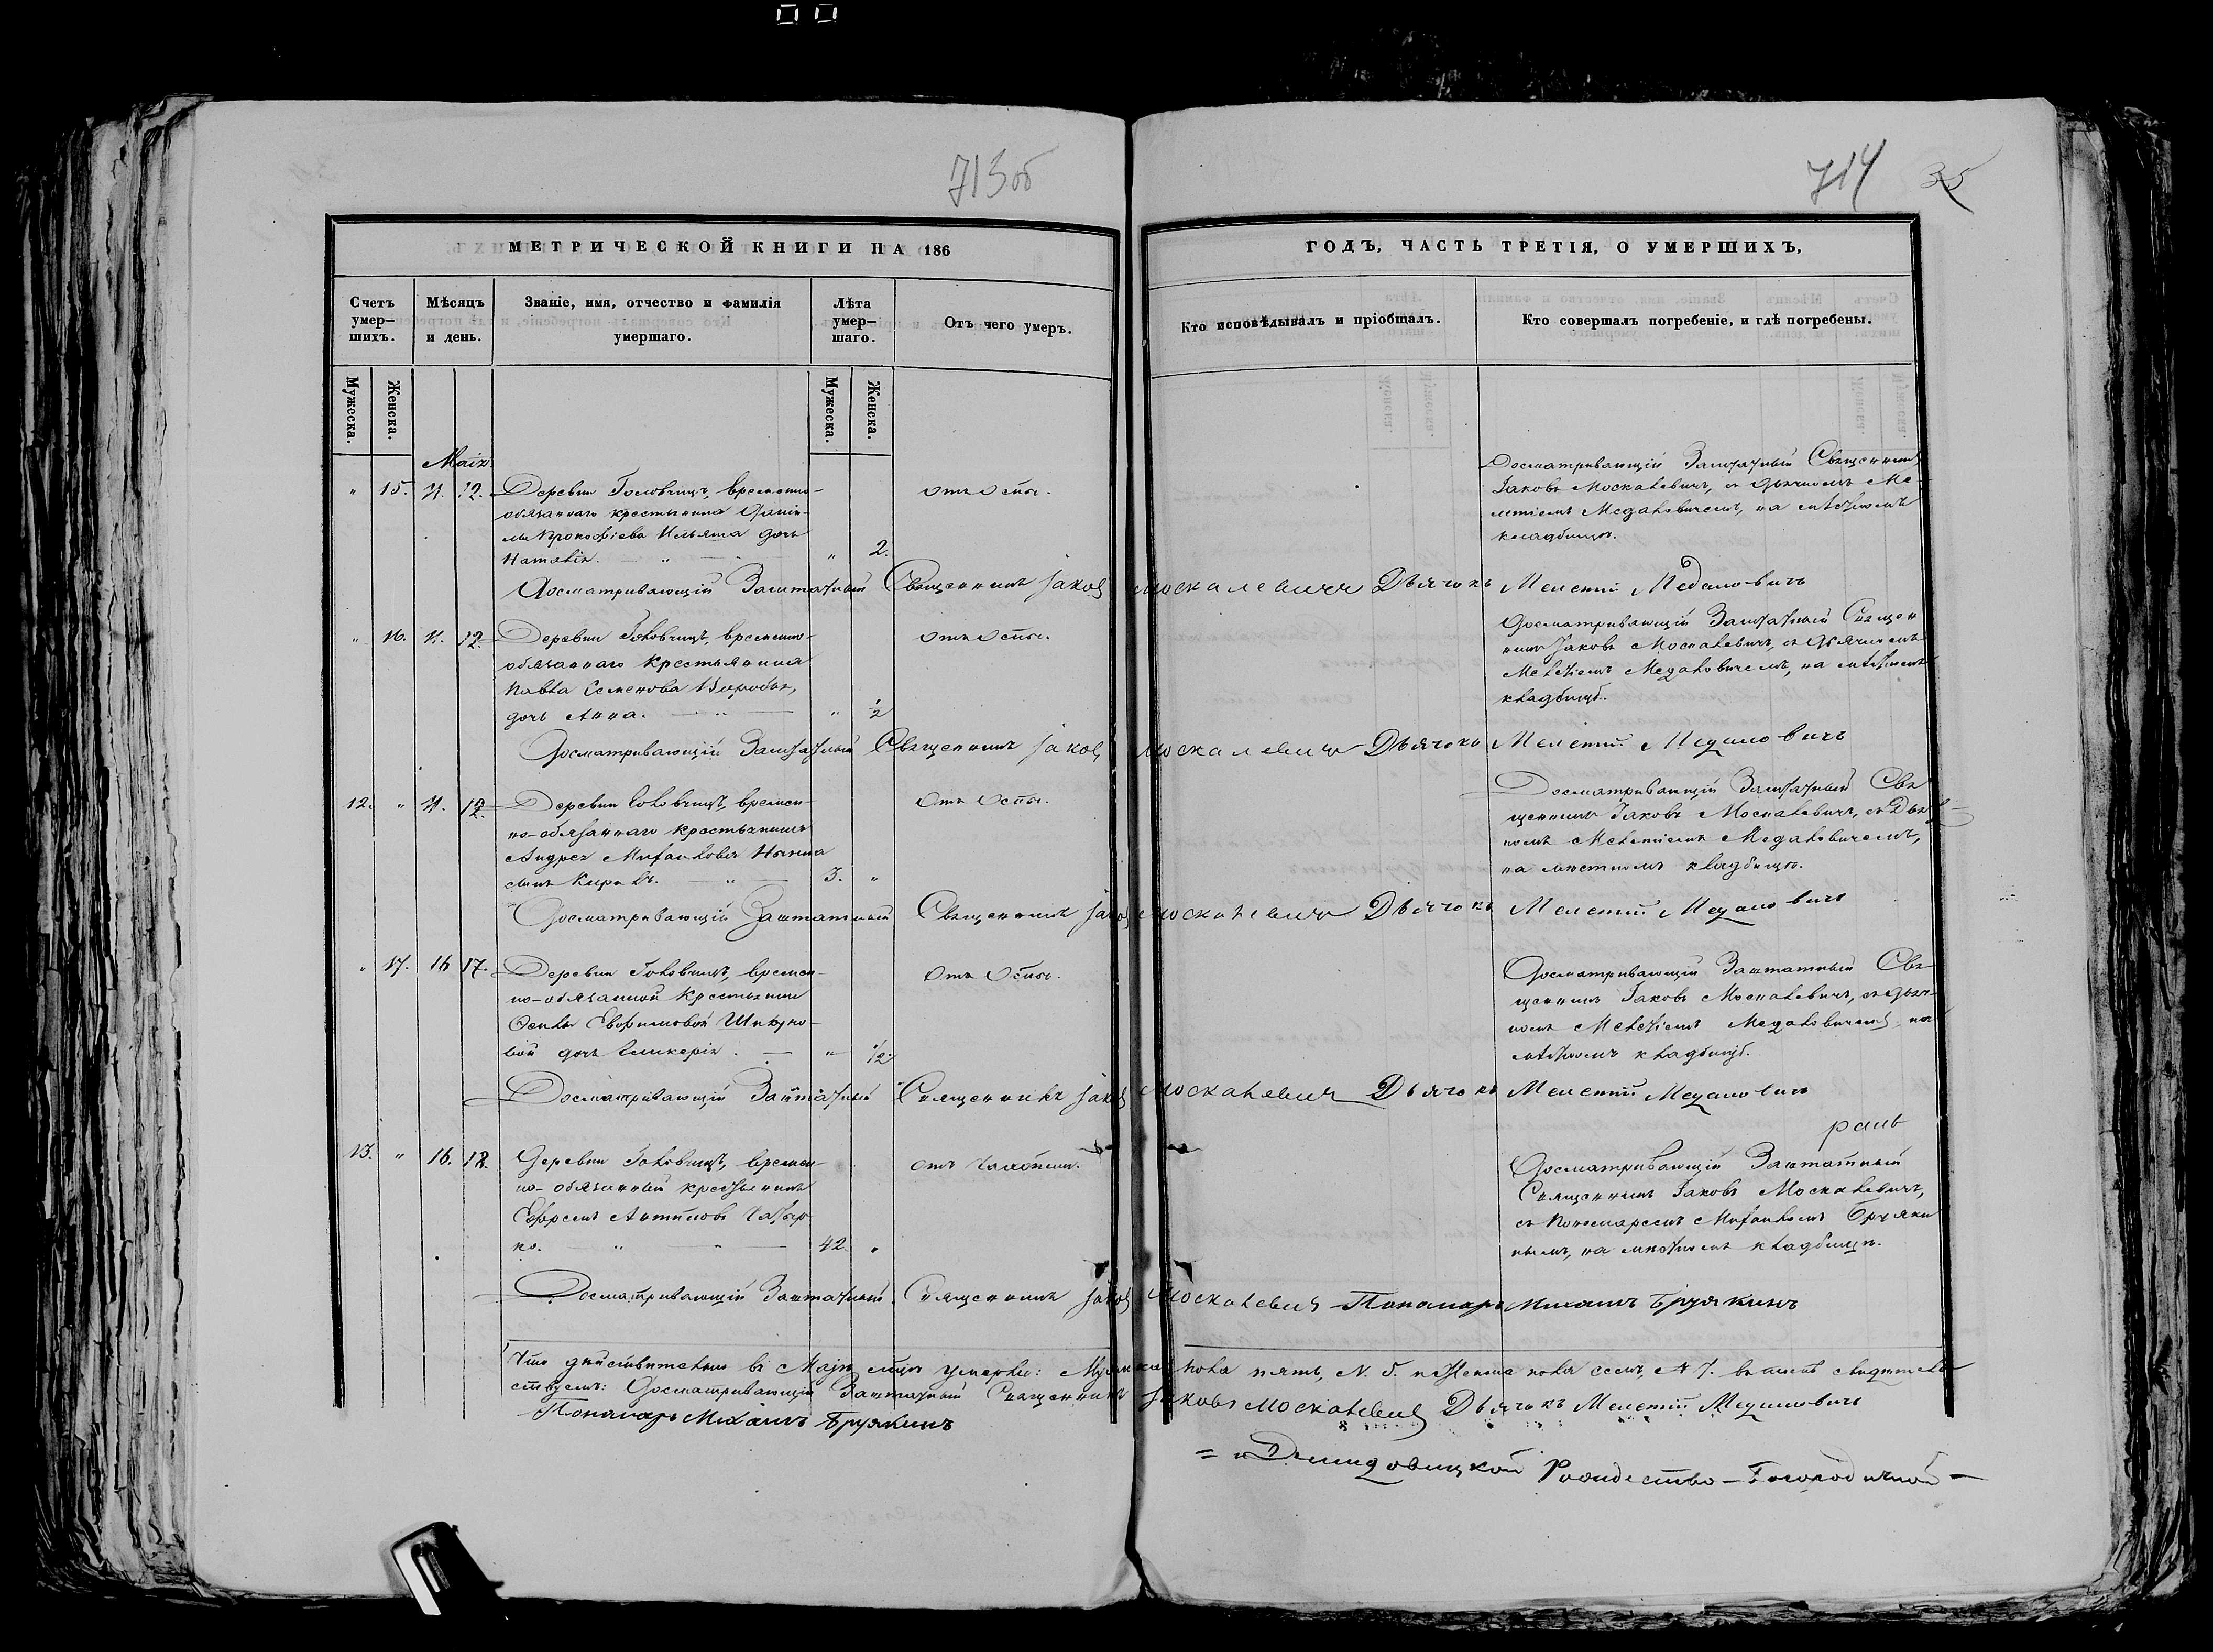 713об
714 35
МЕТРИЧЕСКОЙ КНИГИ НА 186
ГОДЪ, ЧАСТЬ ТРЕТІЯ, О УМЕРШИХЪ,
Счетъ умер-шихъ.
Мѣсяцъ и день.
Званіе, имя, отчество и фамилія умершаго.
Лѣта умер-шаго.
Отъ чего умеръ.
Кто исповѣдывалъ и пріобщалъ.
Кто совершалъ погребеніе, и гдѣ погребены.
Мужеска.
Женска.
Мужеска.
Женска.
Маія
" 15. 11. 12. Деревни Головчицъ, временно-
обязаннаго крестьянина Даніи-
ла Прокофіева Ильяша дочь
Наталія. " " 2.
отъ Оспы.
Досматривающій Заштатный Священникъ
Іаковъ Москалевичъ, съ дьячкомъ Ме-
летіемъ Медаловичемъ, на мѣстномъ
кладбищѣ.
Досматривающій Заштатный Священникъ Іаковъ Москалевичъ Дьячокъ Мелетій Медаловичъ
" 16. 11. 12. Деревни Головчицъ, временно-
обязаннаго крестьянина
Павла Семенова Воробья,
дочь Анна. " " 1/2
отъ Оспы.
Досматривающій Заштатный Священ
никъ Іаковъ Москалевичъ, съ дьячкомъ
Мелетіемъ Медаловичемъ, на мѣстномъ
кладбищѣ.
Досматривающій Заштатный Священникъ Іаковъ Москалевичъ Дьячокъ Мелетій Медаловичъ
12. " 11. 12. Деревни Головчицъ, времен-
но-обязаннаго крестьянина
Андрея Михайлова
сынъ Кирилъ. " 3. "
Отъ Оспы.
Досматривающій Заштатный Свя
щенникъ Іаковъ Москалевичъ, съ Дьяч-
комъ Мелетіемъ Медаловичемъ,
на мѣстномъ кладбищѣ.
Досматривающій Заштатный Священникъ Іаковъ Москалевичъ Дьячокъ Мелетій Медаловичъ
" 17. 16 17. Деревни Головчицъ, времен-
но-обязанной крестьянки
Евфимовой
вой дочь Гликерія. " 1/2.
Отъ Оспы.
Досматривающій Заштатный Свя
щенникъ Іаковъ Москалевичъ, съ дьяч-
комъ Мелетіемъ Медаловичемъ, на
мѣстномъ кладбищѣ.
Досматривающій Заштатный Священникъ Іаковъ Москалевичъ Дьячокъ Мелетій Медаловичъ
13. " 16. 18. Деревни Головчицъ, времен-
но-обязанный крестьянинъ
Ефремъ Антиповъ
ко. " " 42. "
отъ Чахотки.
Досматривающій Заштатный
Священникъ Іаковъ Москалевичъ,
съ Пономаремъ Михаиломъ Бруяки
нымъ, на мѣстномъ кладбищѣ.
Досматривающій Заштатный Священникъ Іаковъ Москалевичъ Пономарь Михаилъ Бруякинъ
Что дѣйствительно въ Маѣ мѣсяцѣ умерло: Мужска пола пять, N. 5. и Женска пола семь, N 7. въ томъ свидѣтель
ствуемъ: Досматривающій Заштатный Священникъ Іаковъ Москалевичъ Дьячокъ Мелетій Медаловичъ
Пономарь Михаилъ Бруякинъ
= Демидовицкой Рождество-Богородичной -